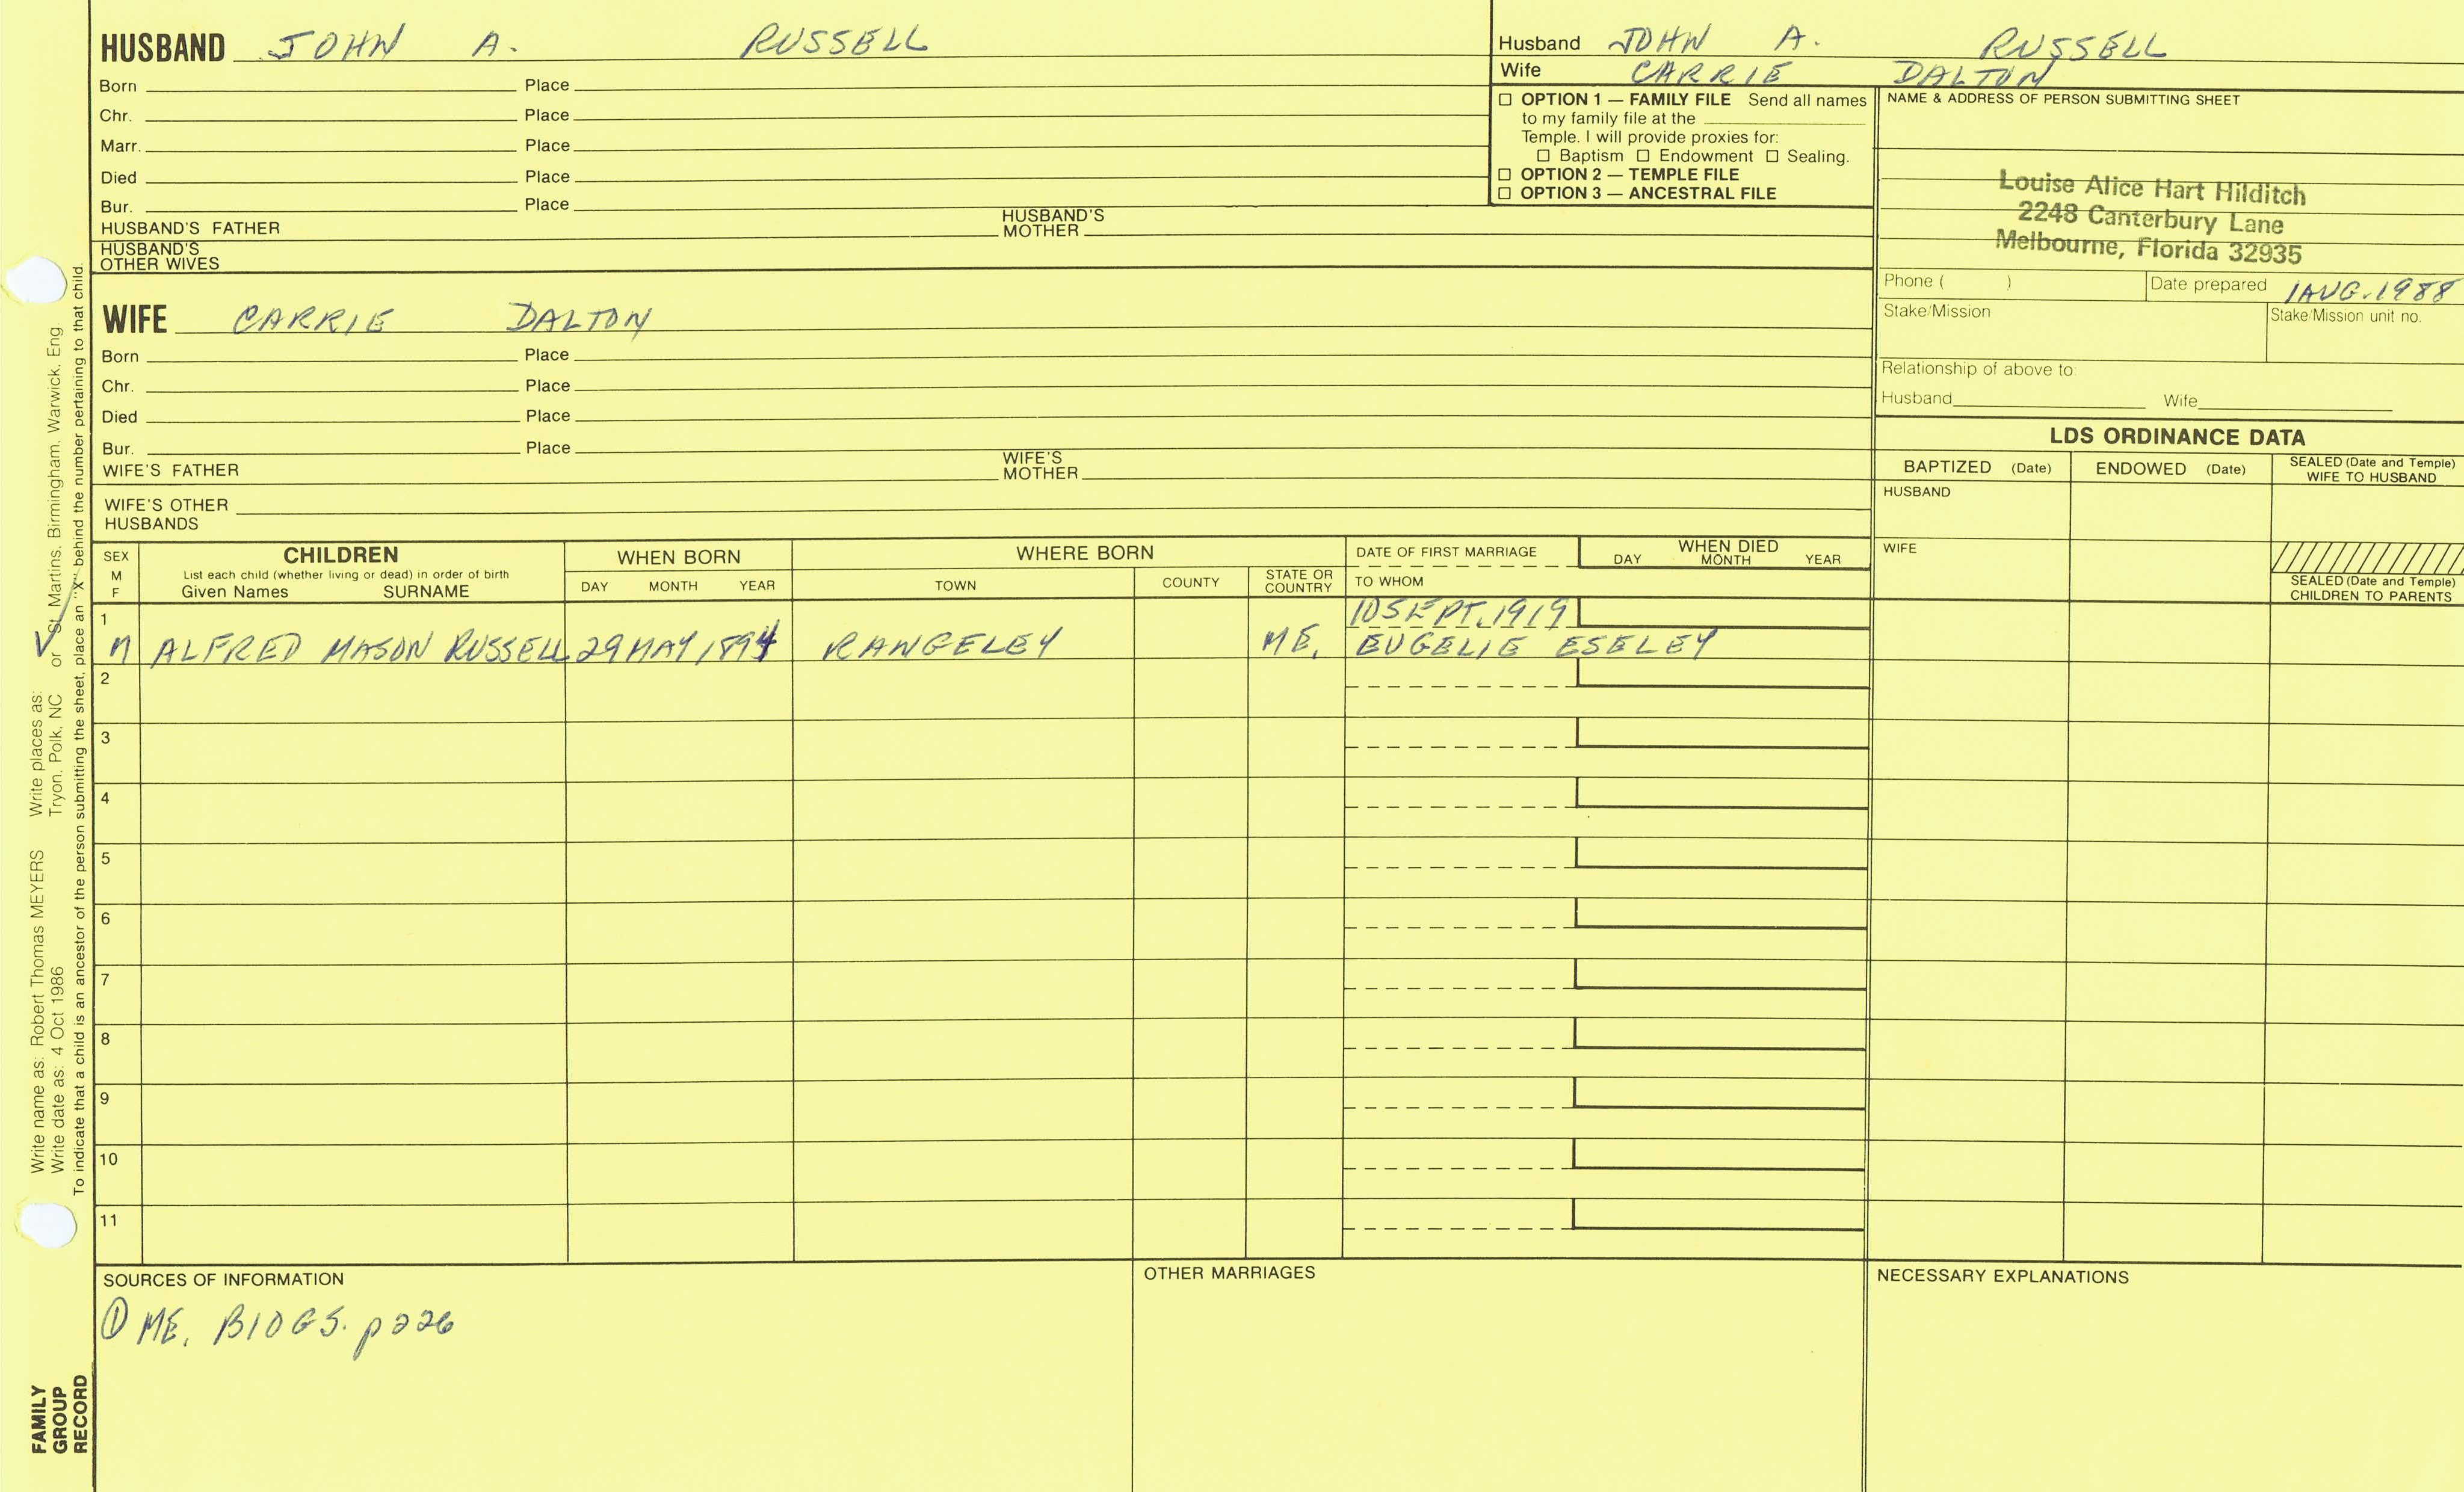 HUSBAND JOHN A. RUSSELL
Born Place
Chr. Place
Marr. Place
Died Place
Bur. Place
HUSBAND'S FATHER HUSBAND'S MOTHER
HUSBAND'S OTHER WIVES
Husband JOHN A. RUSSELL
Wife CARRIE DALTON
☐ OPTION 1 — FAMILY FILE Send all names
to my family file at the
Temple. I will provide proxies for:
☐ Baptism ☐ Endowment ☐ Sealing.
☐ OPTION 2 — TEMPLE FILE
☐ OPTION 3 — ANCESTRAL FILE
NAME & ADDRESS OF PERSON SUBMITTING SHEET
Louise Alice Hart Hilditch
2248 Canterbury Lane
Melbourne, Florida 32935
Phone ( ) Date prepared 1AUG.1988
Stake/Mission Stake/Mission unit no.
Relationship of above to:
Husband Wife
WIFE CARRIE DALTON
Born Place
Chr. Place
Died Place
Bur. Place
WIFE'S FATHER WIFE'S MOTHER
WIFE'S OTHER
HUSBANDS
LDS ORDINANCE DATA
BAPTIZED (Date) ENDOWED (Date) SEALED (Date and Temple)
WIFE TO HUSBAND
HUSBAND
WIFE
SEALED (Date and Temple)
CHILDREN TO PARENTS
SEX
M
F
CHILDREN
List each child (whether living or dead) in order of birth
Given Names SURNAME
WHEN BORN
DAY MONTH YEAR
WHERE BORN
TOWN COUNTY STATE OR COUNTRY
DATE OF FIRST MARRIAGE
TO WHOM
WHEN DIED
DAY MONTH YEAR
1 10 SEPT. 1919
M ALFRED MASON RUSSELL 29 MAY 1894 RANGELEY ME. EUGELIE ESELEY
2
3
4
5
6
7
8
9
10
11
SOURCES OF INFORMATION
① ME. BIOGS. p226
OTHER MARRIAGES
NECESSARY EXPLANATIONS
Write name as: Robert Thomas MEYERS Write places as:
Write date as: 4 Oct 1986 Tryon, Polk, NC or St. Martins, Birmingham, Warwick, Eng
To indicate that a child is an ancestor of the person submitting the sheet, place an "X" behind the number pertaining to that child.
FAMILY
GROUP
RECORD